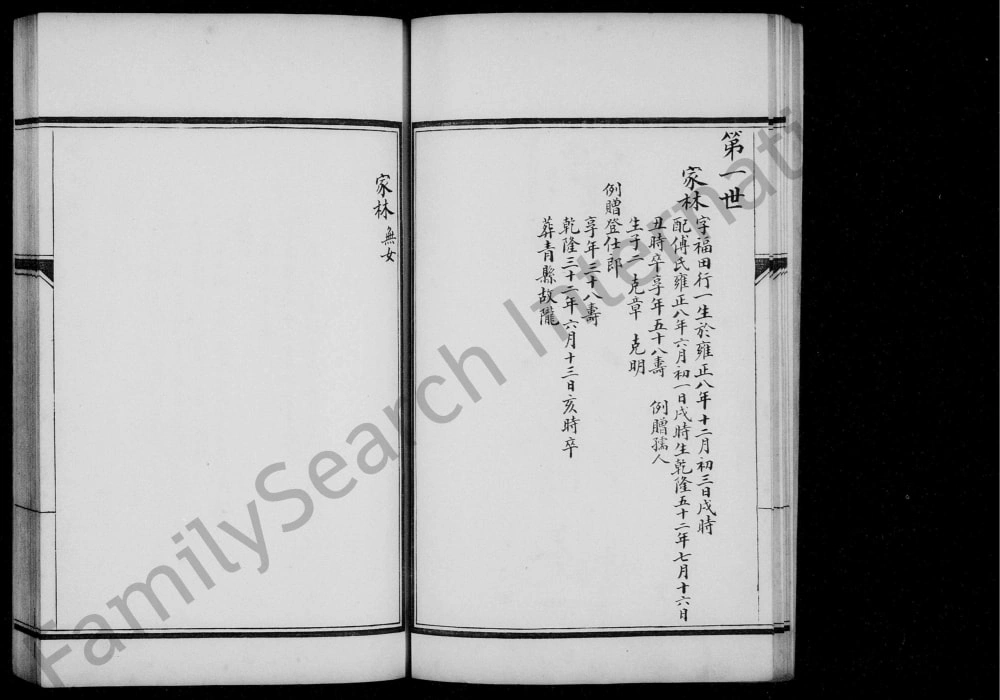 第一世
家林
字福田行一生於雍正八年十二月初三日戌時
配傅氏雍正八年六月初一日戌時生乾隆五十二年七月十六日
丑時卒享年五十八壽 例贈孺人
生子二 克章 克明
例贈登仕郎
享年三十八壽
乾隆三十二年六月十三日亥時卒
葬青縣故隴
家林 無女
FamilySearch International